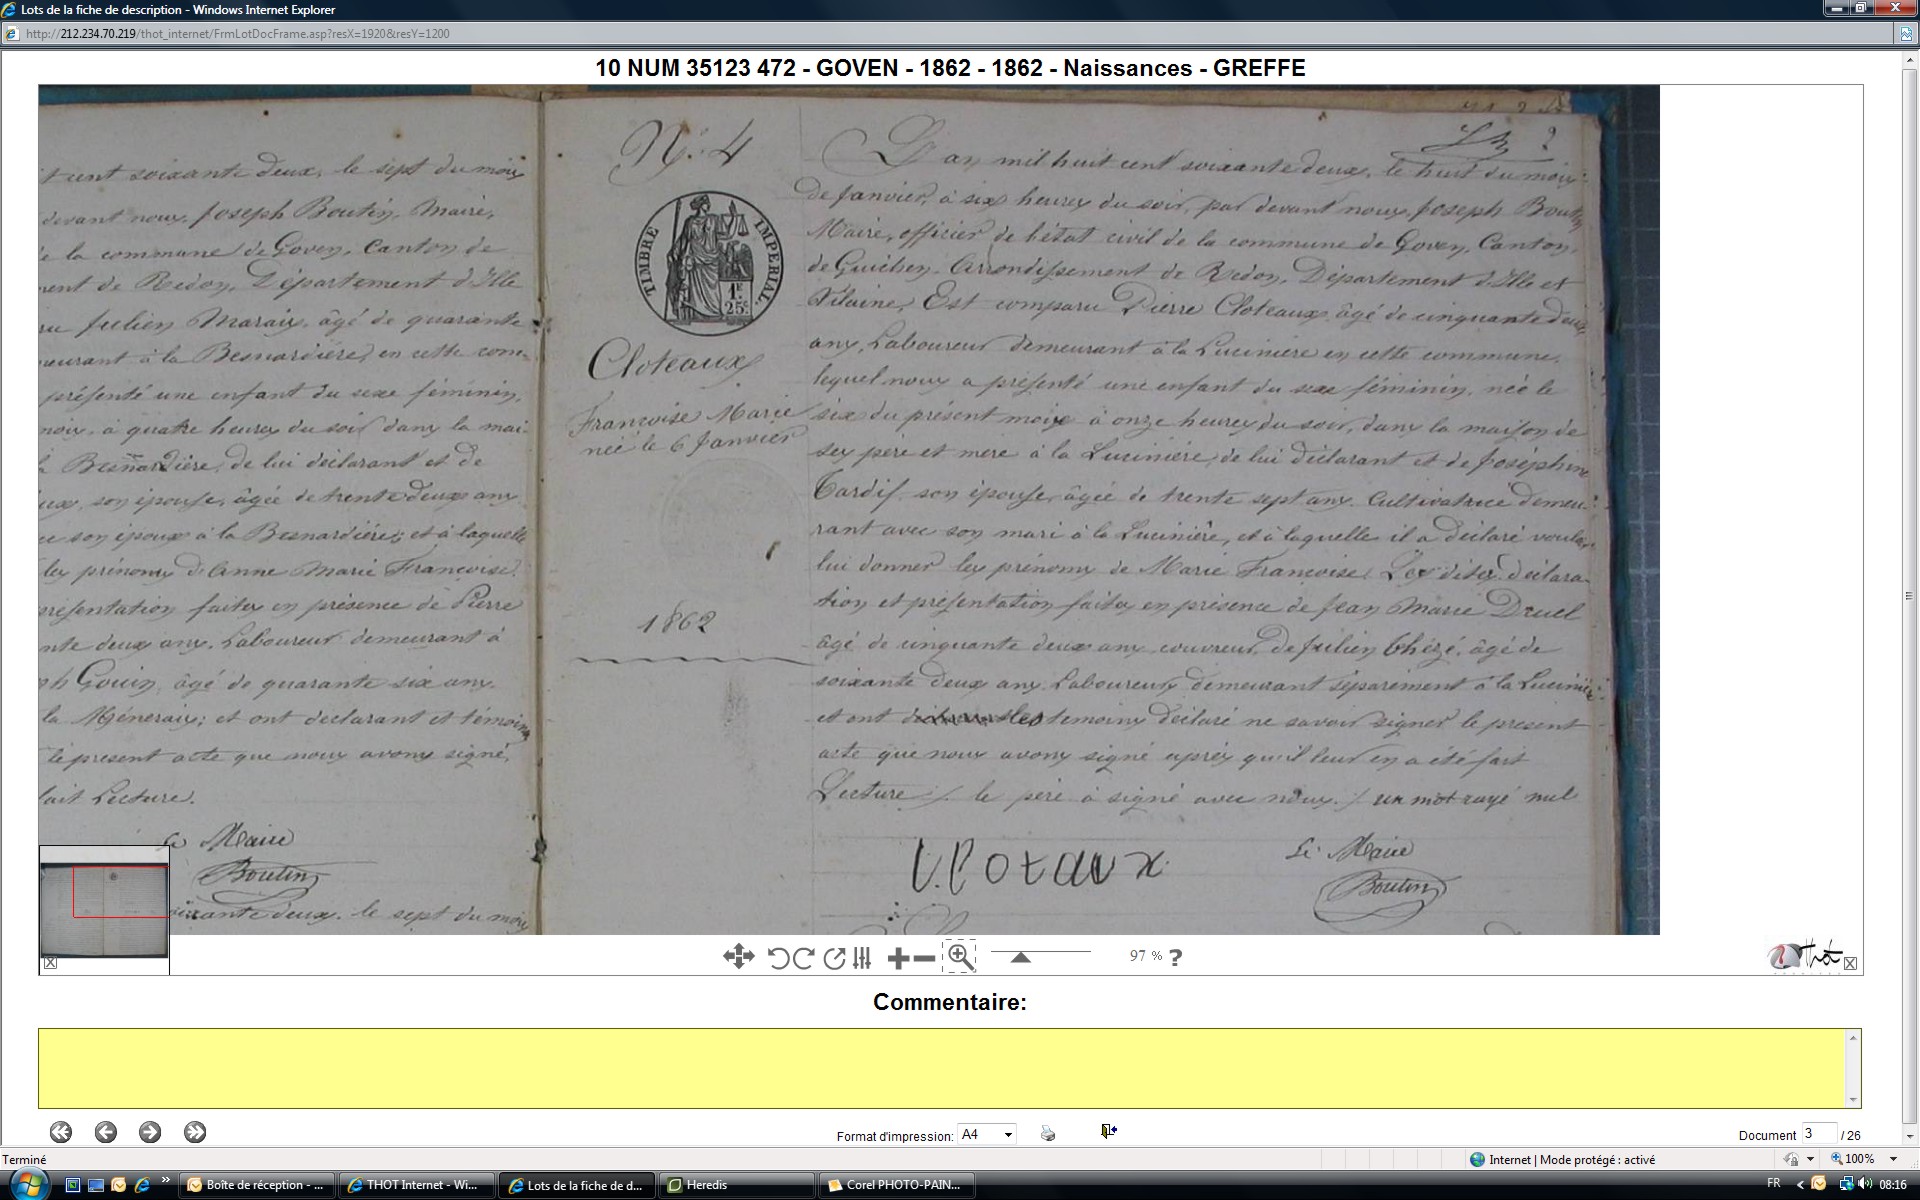 Lots de la fiche de description - Windows Internet Explorer
http://212.234.70.219/thot_internet/FrmLotDocFrame.asp?resX=1920&resY=1200
10 NUM 35123 472 - GOVEN - 1862 - 1862 - Naissances - GREFFE
cent soixante deux, le sept du mois
devant nous, Joseph Boutin, Maire,
de la commune de Goven, Canton de
de Redon, Département d'Ille
Julien Marais, âgé de quarante
à la Besnardière, en cette com-
présenté une enfant du sexe féminin,
mois, à quatre heures du soir, dans la mai-
Besnardière, de lui déclarant et de
son épouse, âgée de trente deux ans
son époux à la Besnardière; et à laquelle
les prénoms d'Anne Marie Françoise.
présentation faites en présence de Pierre
deux ans, Laboureur demeurant à
Gouin, âgé de quarante six ans.
la Méneraix; et ont déclarant et témoins
le présent acte que nous avons signé,
fait Lecture.
Le Maire
Boutin
soixante deux, le sept du mois
N° 4
TIMBRE IMPERIAL
1F
25c
Cloteaux
Françoise Marie
née le 6 Janvier
1862
2
L'an mil huit cent soixante deux, le huit du mois
de Janvier, à six heures du soir, par devant nous, Joseph Boutin
Maire, officier de l'état civil de la commune de Goven, Canton
de Guichen, Arrondissement de Redon, Département d'Ille et
Vilaine, Est comparu Pierre Cloteaux, âgé de cinquante deux
ans, Laboureur demeurant à la Lucinière en cette commune,
lequel nous a présenté une enfant du sexe féminin, née le
six du présent mois à onze heures du soir, dans la maison de
ses père et mère à la Lucinière, de lui déclarant et de Joséphine
Tardif, son épouse, âgée de trente sept ans, Cultivatrice demeu-
rant avec son mari à la Lucinière, et à laquelle il a déclaré vouloir
lui donner les prénoms de Marie Françoise. Les dites déclara-
tion et présentation faites en présence de Jean Marie Druel
âgé de cinquante deux ans, couvreur, de Julien Thézé, âgé de
soixante deux ans, Laboureur, demeurant séparément à la Lucinière
et ont les témoins déclaré ne savoir signer le présent
acte que nous avons signé après qu'il leur en a été fait
Lecture ./. le père à signé avec nous. /. un mot rayé nul
Clotaux
Le Maire
Boutin
97 % ?
Thot
Commentaire:
Format d'impression: A4
Document 3 / 26
Terminé
Internet | Mode protégé : activé
100%
Boîte de réception - ...
THOT Internet - Wi...
Lots de la fiche de d...
Heredis
Corel PHOTO-PAIN...
FR
08:16